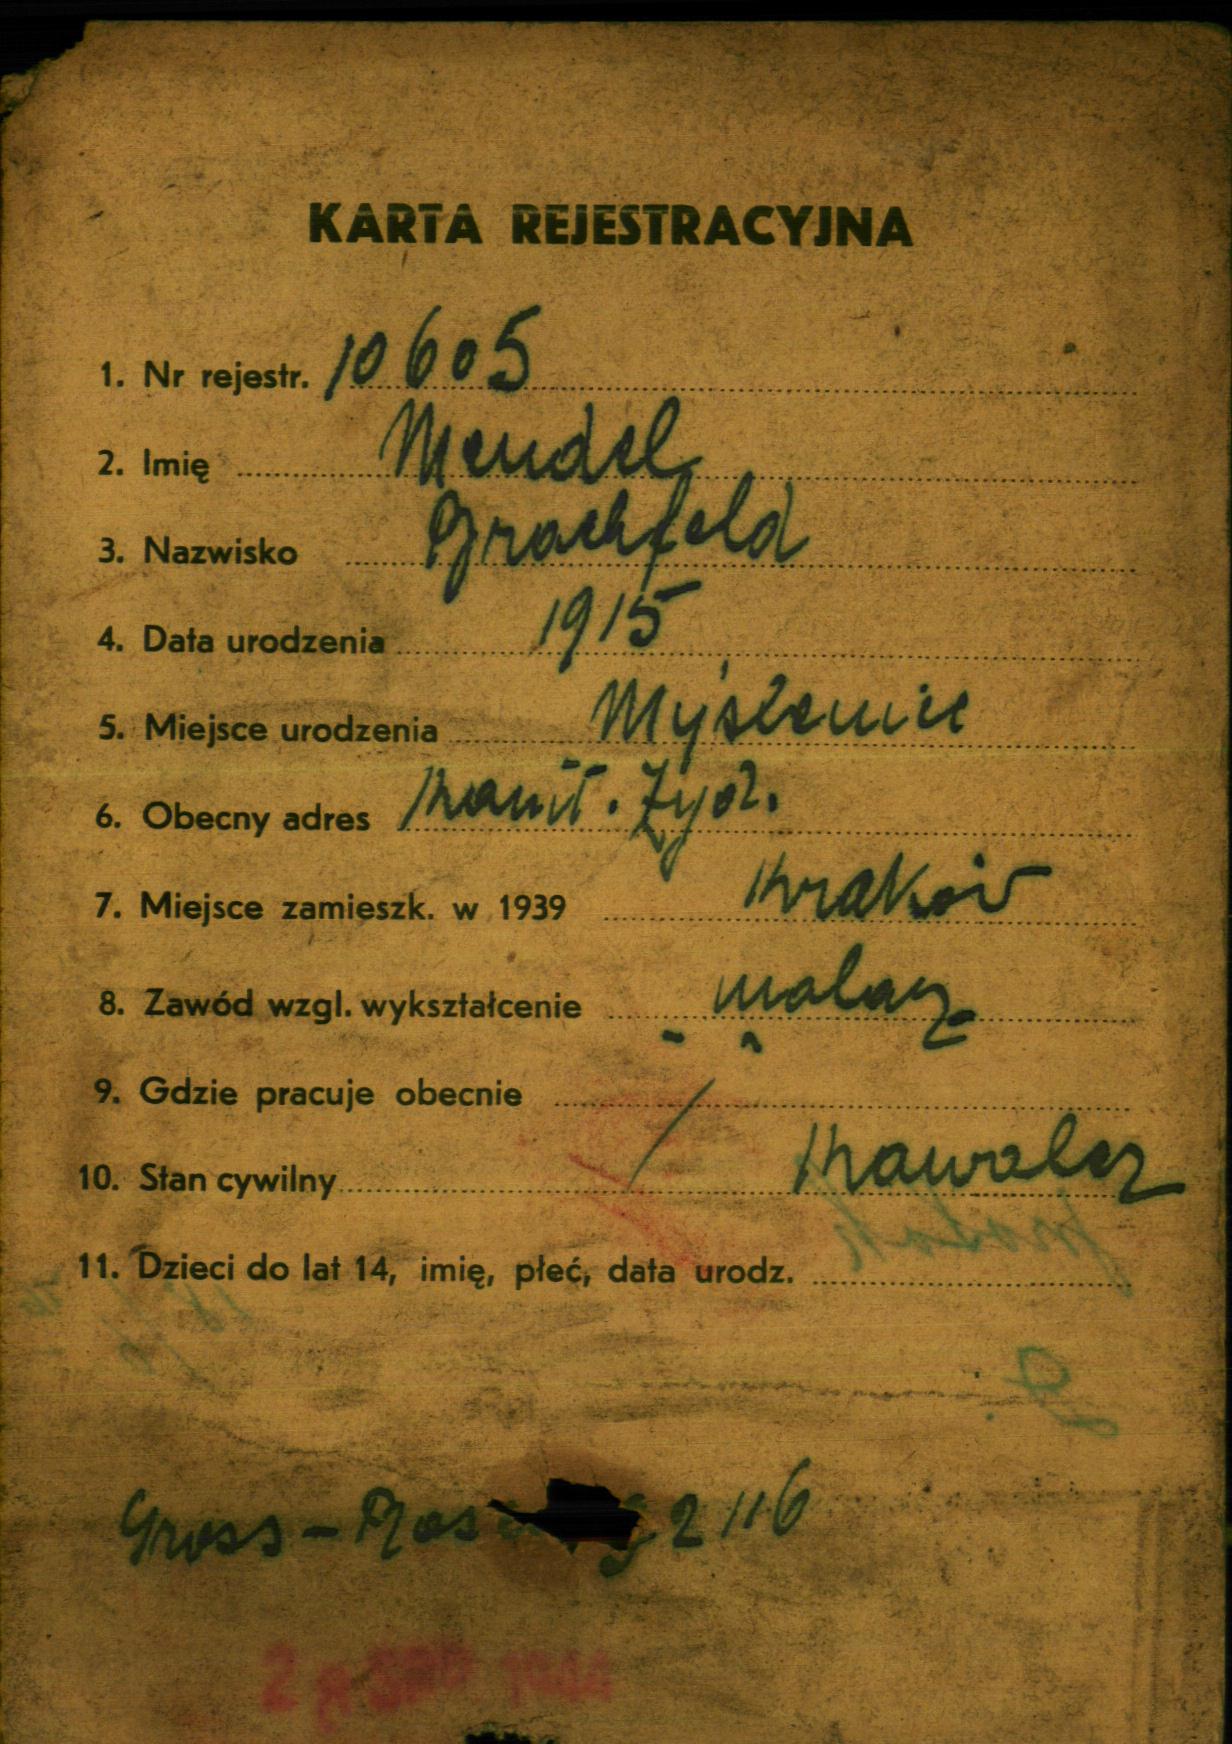 KARTA REJESTRACYJNA
1. Nr rejestr. 10605
2. Imię Mendel
3. Nazwisko
4. Data urodzenia 1915
5. Miejsce urodzenia Myślenice
6. Obecny adres Komit. Żyd.
7. Miejsce zamieszk. w 1939 Kraków
8. Zawód wzgl. wykształcenie malarz
9. Gdzie pracuje obecnie /
10. Stan cywilny Kawaler
11. Dzieci do lat 14, imię, płeć, data urodz.
Gross - 2116